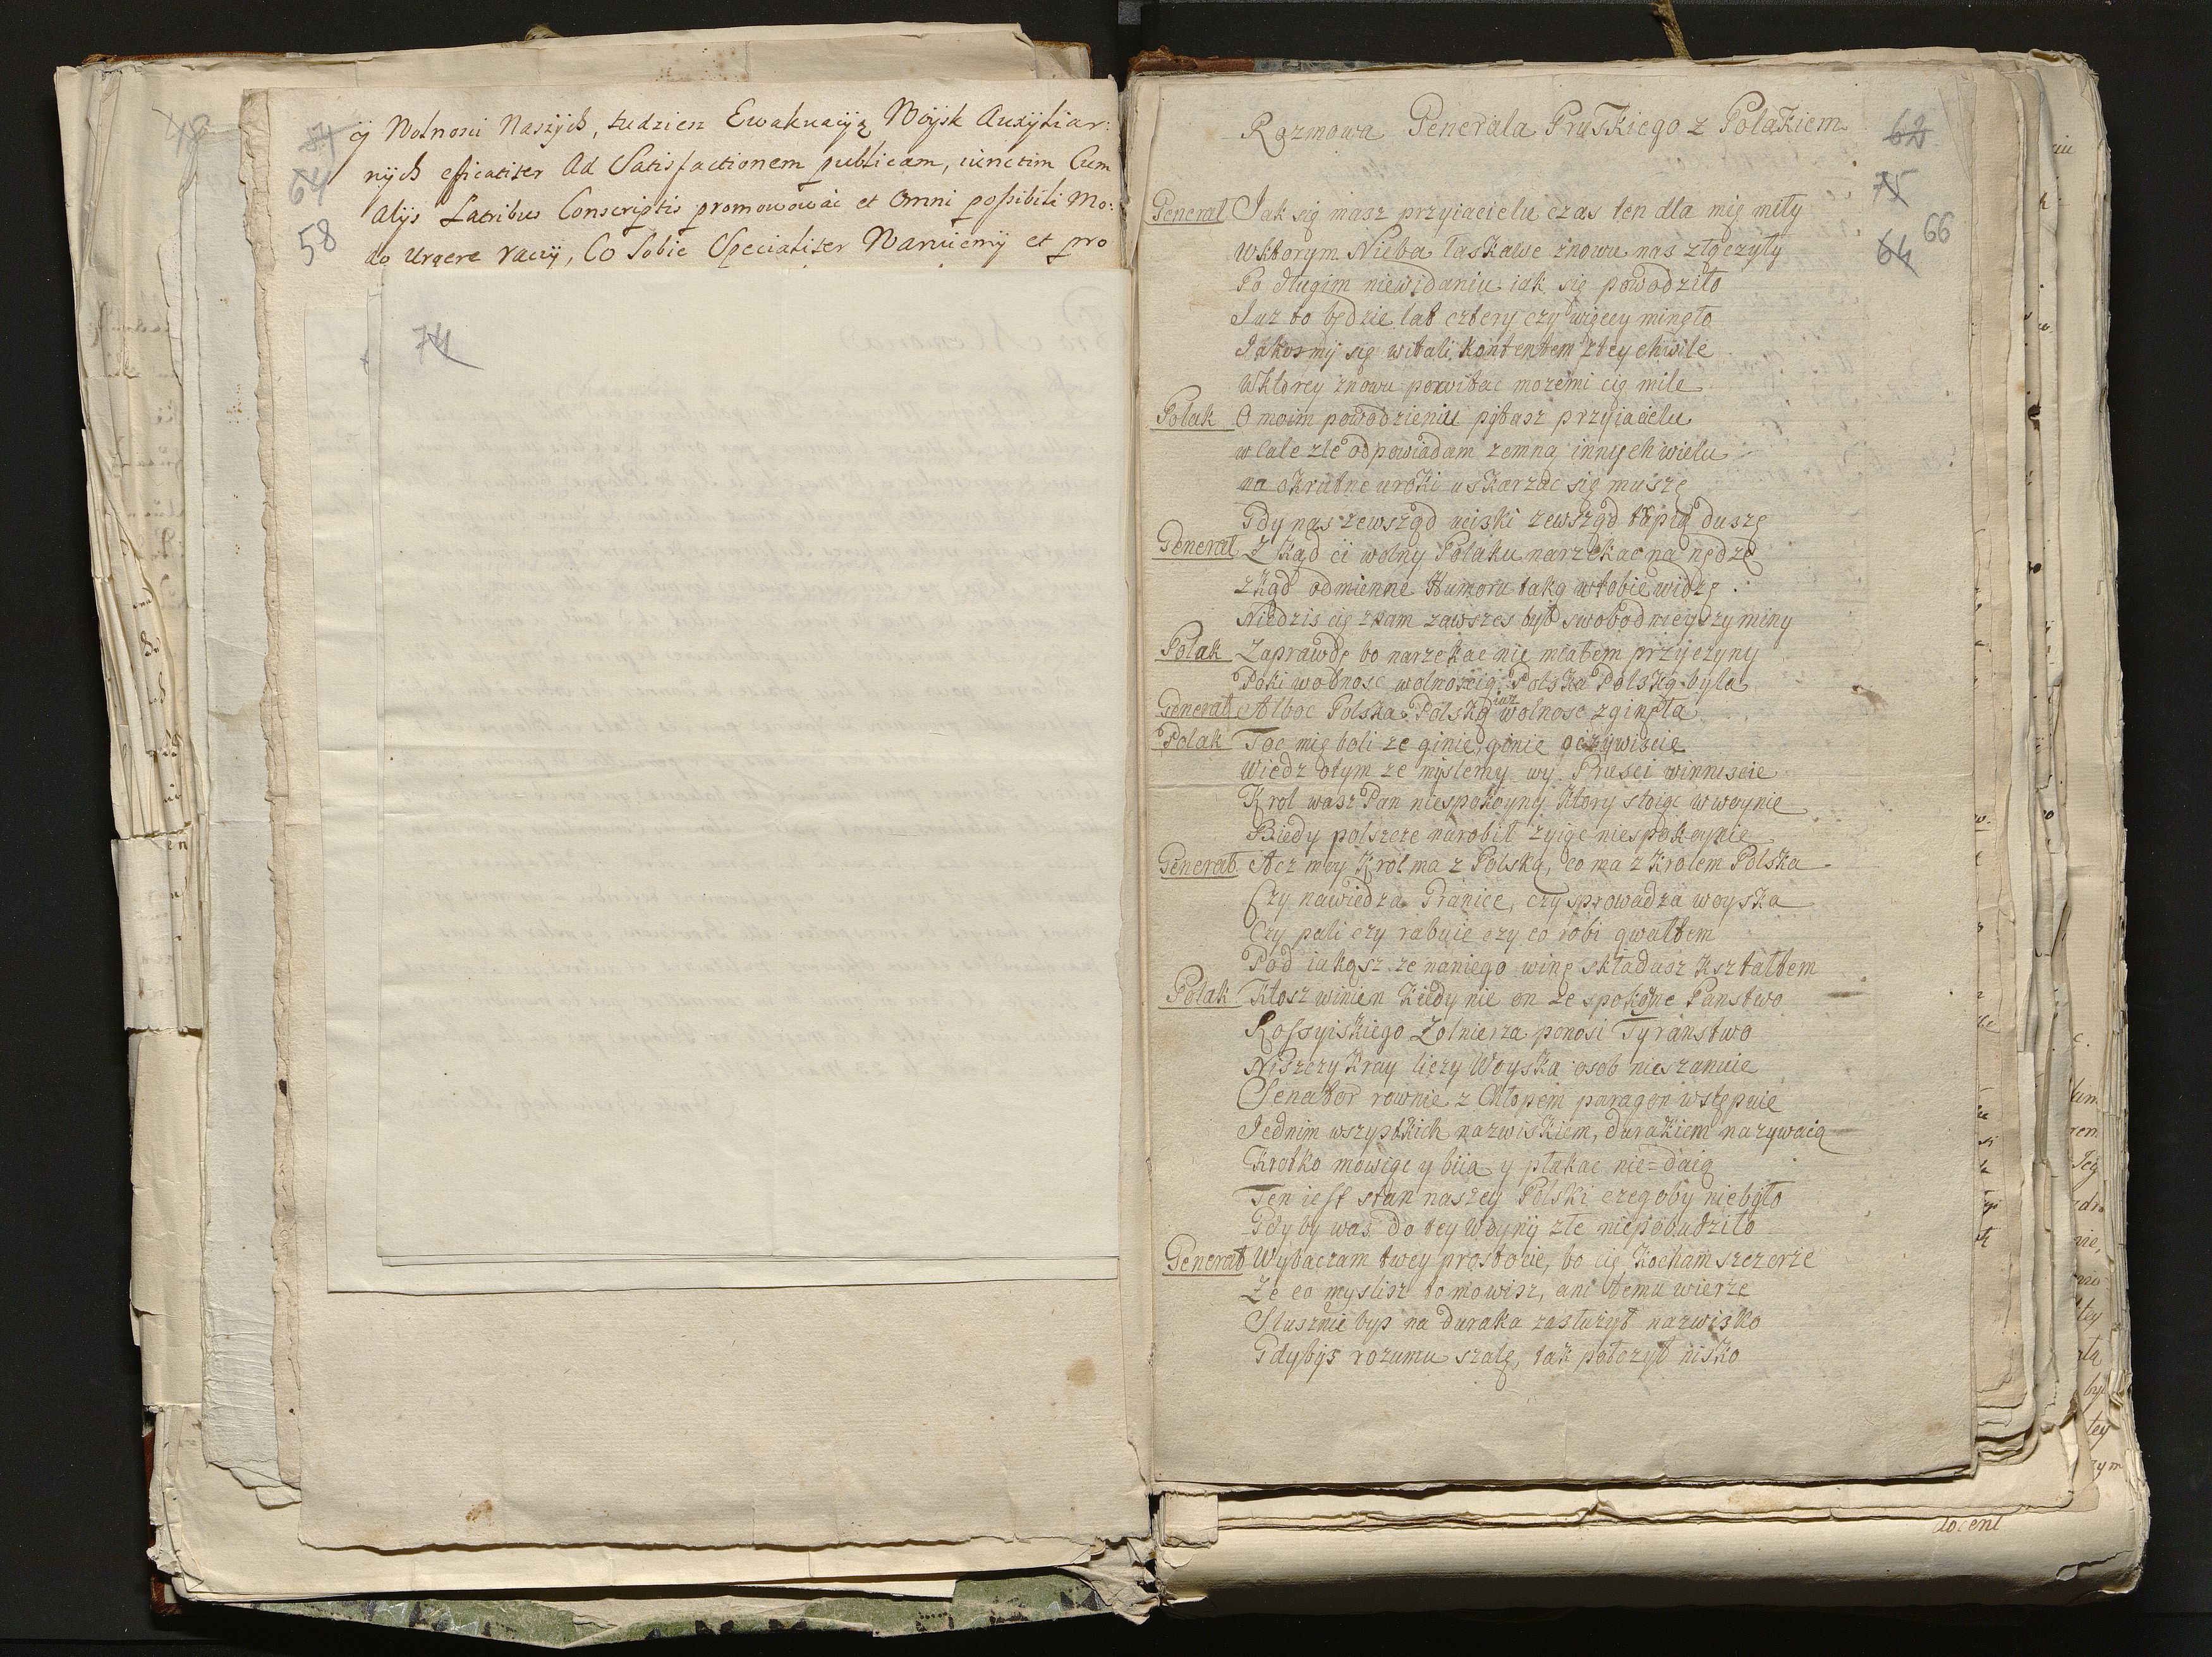 cÿ Wolnosci Naszÿch, tudziesz Ewakuacÿą Woysk Auxÿliar:
nÿch eficatiter ad Satisfactionem publicam, iunctim Cum
alÿs Fatribus Conscriptis promowowac et omni possibili Mo:
do Urgere raczÿ, Co Sobie Specialiter Waruiemÿ et pro
64
58
74
Rozmowa Generala Pruskiego z Polakiem
62
75
64
66
General Jak się masz przyiacielu czas ten dla mię miły
Wktorym Nieba łaskawe znowu nas złączyły
Po długim niewidaniu iak się powodziło
Juz to będzie lat cztery czy więcey mineło
Jakosmÿ się witali kontentem ztey chwile
Wktorey znowu powitac mozemi cię mile
Polak O moim powodzeniu pytasz przyiacielu
w cale zle odpowiadam zemną innych wielu
na okrutne uroki uskarzac się muszę
Gdy nas zewsząd uciski zewsząd trapią duszę
General Z kąd ci wolny Polaku narzekac na nędzę
zkąd odmienne Humoru taką wtobie widzę
Niedzis cię znam zawszes był swobodnieyszy miny
Polak Zaprawdę bo narzekac nie miałem przÿczyny
Poki wolnosc wolnoscią, Polska Polską była
General Alboc Polska Polską iuz wolnosc zginęła
Polak Toc mię boli ze ginie, ginie oczÿwiscie
Wiedz otym ze myslemy wy Prusci winniscie
Krol wasz Pan niespokoyny ktory stoiąc w woynie
Biedy polszcze narobił zyiąc niespokoynie
General Acz moy Krol ma z Polską, co ma z Krolem Polska
Czy nawiedza Granice, czy sprowadza woyska
Czy pali czy rabuie czy co robi gwałtem
Pod iakąsz ze naniego winę składasz kształtem
Polak Ktosz winien kiedy nie on ze spokoyne Panstwo
Rossyiskiego Zołnierza ponosi Tyranstwo
Niszczy Kray liczy Woyska osob nieszanuie
Senator rownie z Chłopem paragon wstępuie
Jednim wszystkich nazwiskiem, durakiem nazywaią
Krotko mowiąc y biia y płakac nie=daią
Ten iest stan naszey Polski czegoby niebyło
Gdy by was do tey Woynÿ złe niepobudziło
General Wybaczam twey prostocie, bo cię kocham szczerze
Ze co myslisz to mowisz, ani temu wierze
Slusznie bys na duraka zasłuzył nazwisko
Gdybys rozumu szalę, tak połozył nisko
docent